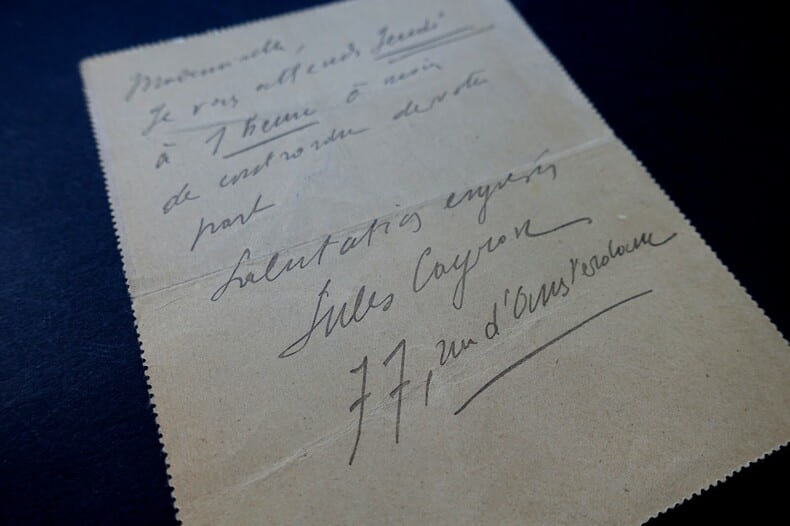 Mademoiselle,
Je vous attends Jeudi
à 1 heure à moins
de contrordre de votre
part
Salutations empressées
Jules Cayron
77, rue d'Amsterdam